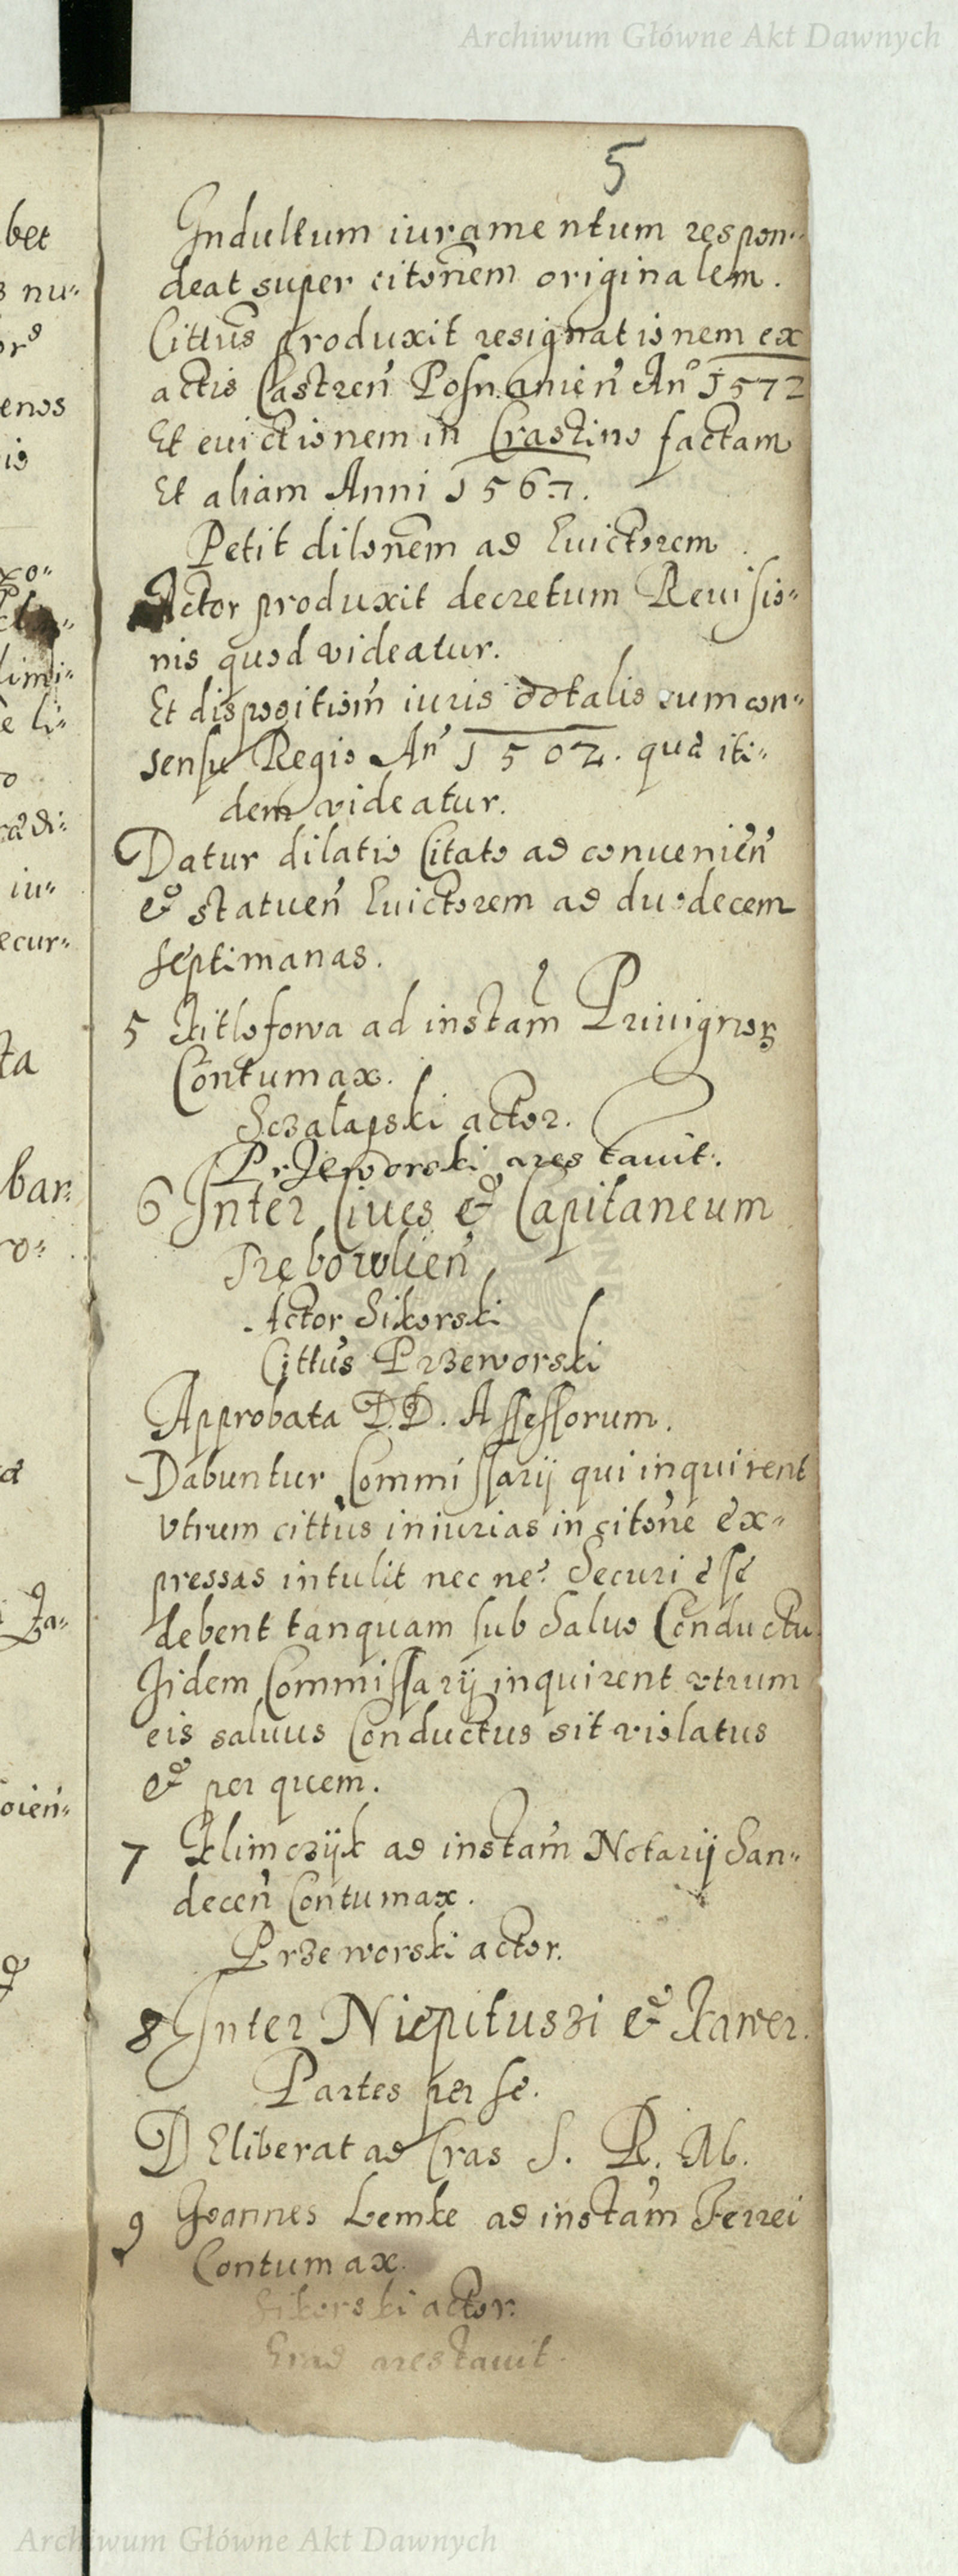 Archiwum Główne Akt Dawnych
5
Indultum iuramentum respon-
deat super citonem originalem.
Cittus produxit resignationem ex
actis Castren Posnanien An° 1572
Et euictionem in Crastino factam
Et aliam Anni 1567.
Petit dilonem ad Euictorem
Actor produxit decretum Reuisio-
nis quod videatur.
Et dispositiom iuris dotalis cum con-
sensu Regio An 1502. qua iti-
dem videatur.
Datur dilatio Citato ad conuenien
et statuen Euictorem ad duodecem
septimanas.
5 Kitlosowa ad instam Priuignor
Contumax.
Sczalapski actor.
Przeworski arestauit.
6 Inter Ciues et Capitaneum
Trębowlien
Actor Sikorski
Cittus Przeworski
Approbata D.D. Assessorum.
Dabuntur Commissarij qui inquirent
vtrum cittus iniurias in citone ex-
pressas intulit nec ne? Securi esse
debent tanquam sub Saluo Conductu
Iidem Commissarij inquirent vtrum
eis saluus Conductus sit violatus
et per quem.
7 Klimczyk ad instam Notarij San-
decen Contumax.
Przeworski actor.
8 Inter Niepituszi et Kawer.
Partes per se.
DEliberat ad Cras S. R. M.
9 Joannes Lemke ad instam Ferrei
Contumax.
Sikorski actor.
arestauit.
bet
nu-
enos
is
xo-
limi-
e li-
iu-
ecur-
ta
bar
ro-
oien-
Archiwum Główne Akt Dawnych